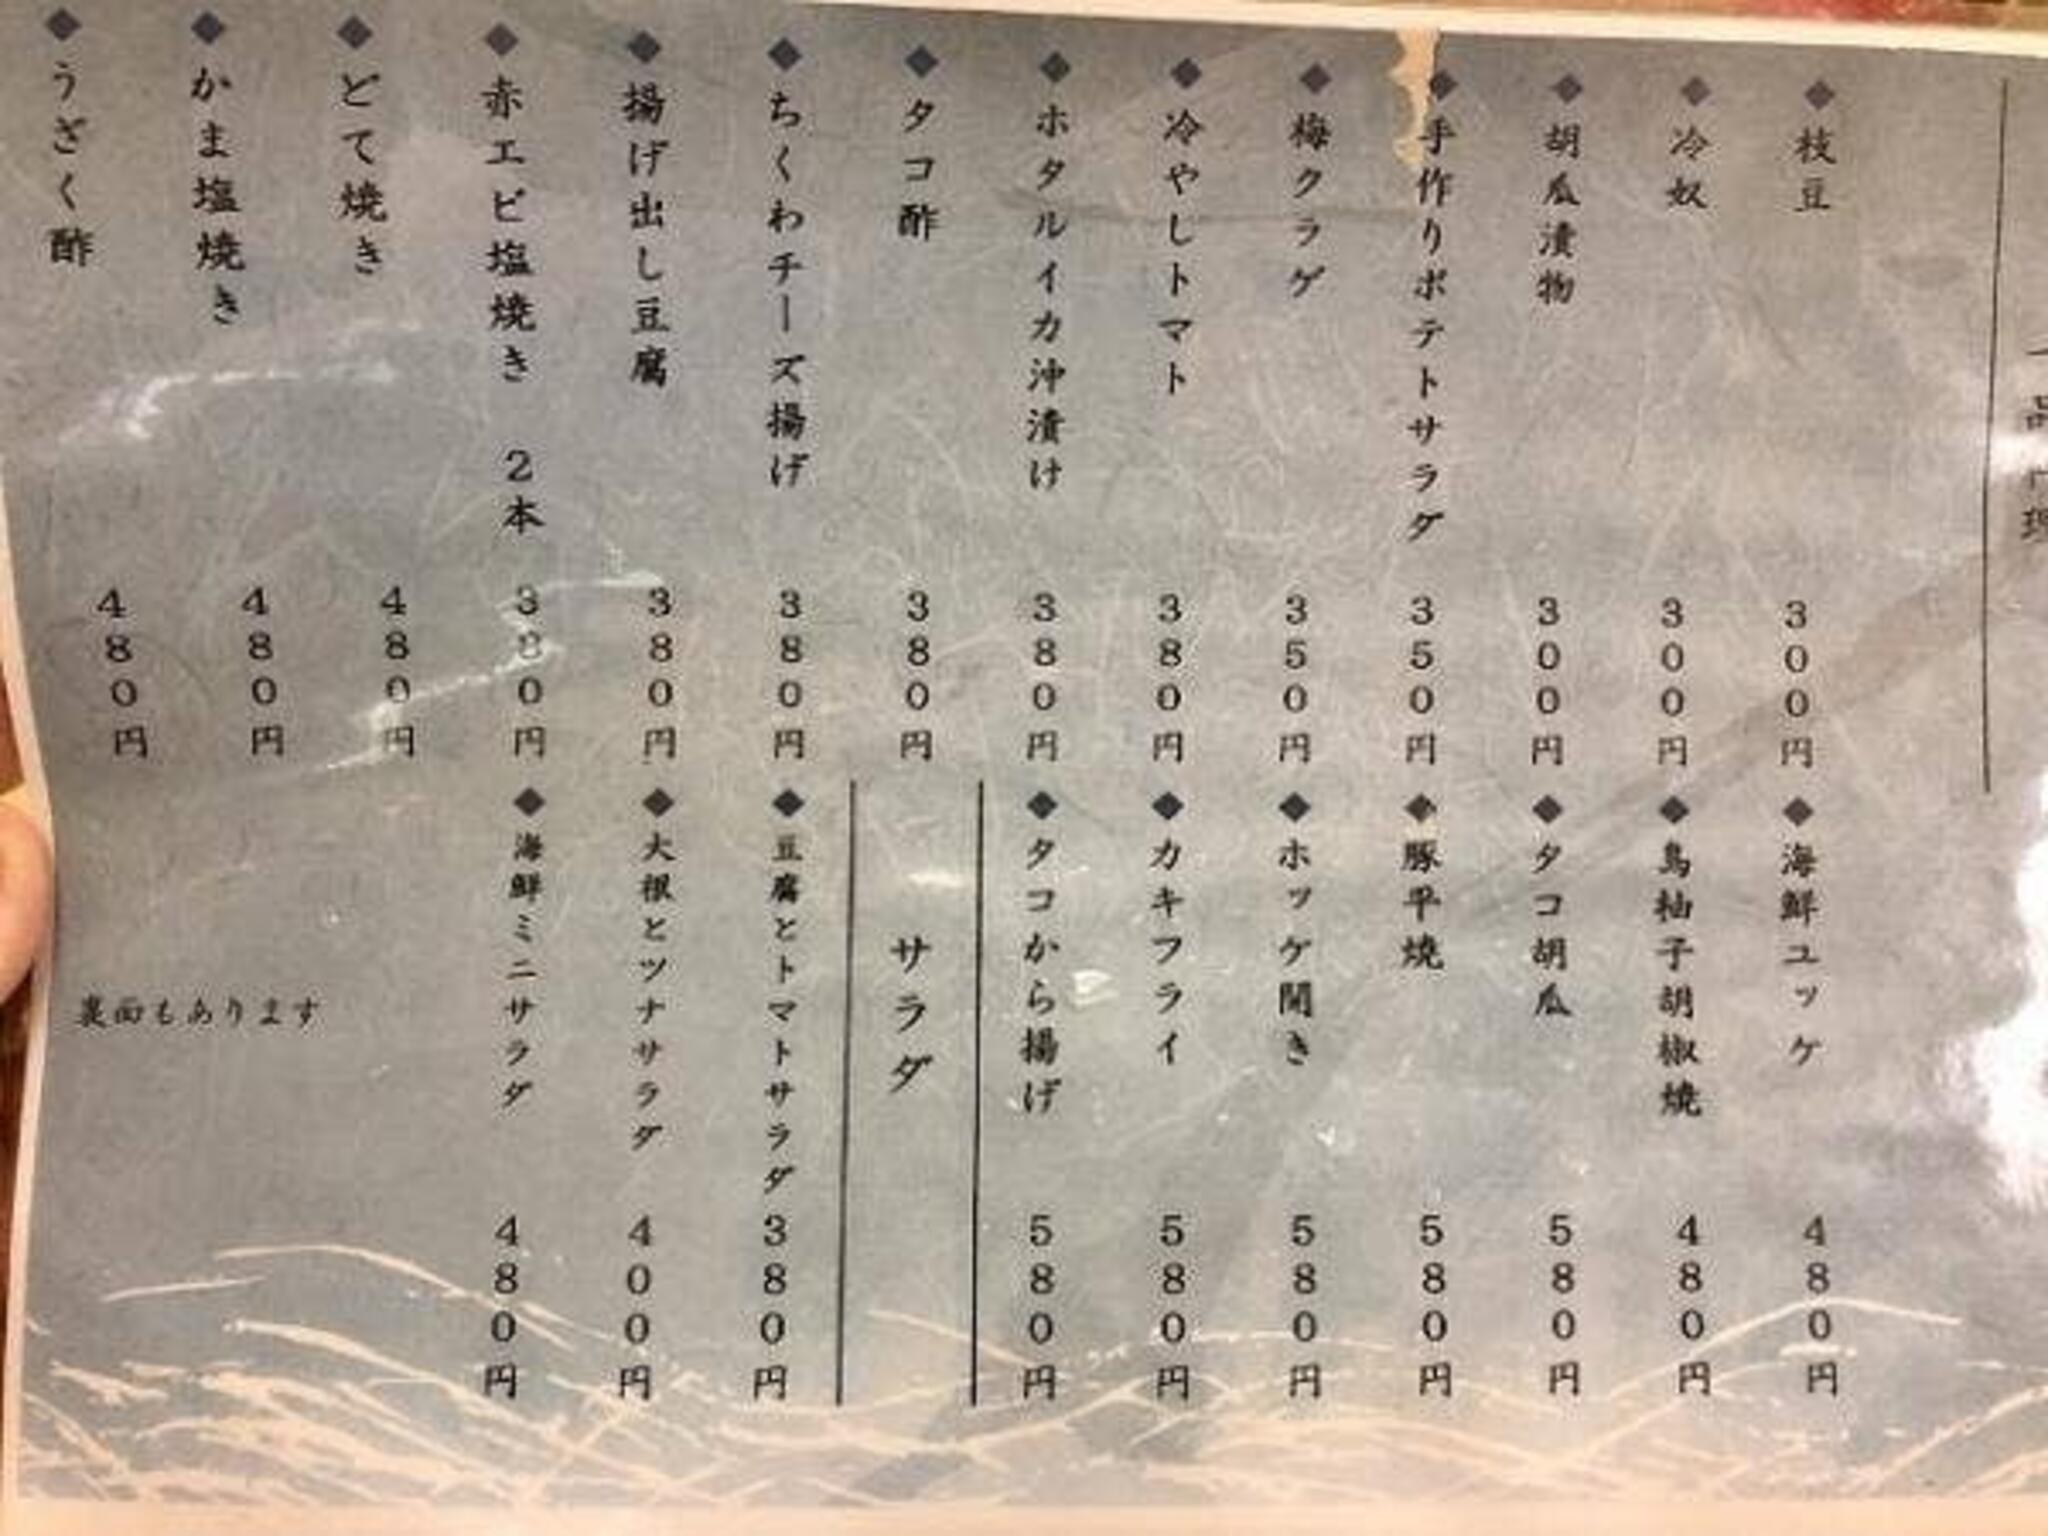 一品料理
◆枝豆 300円
◆冷奴 300円
◆胡瓜漬物 300円
◆手作りポテトサラダ 350円
◆梅クラゲ 350円
◆冷やしトマト 380円
◆ホタルイカ沖漬け 380円
◆タコ酢 380円
◆ちくわチーズ揚げ 380円
◆揚げ出し豆腐 380円
◆赤エビ塩焼き 2本 380円
◆どて焼き 480円
◆かま塩焼き 480円
◆うざく酢 480円
◆海鮮ユッケ 480円
◆鳥柚子胡椒焼 480円
◆タコ胡瓜 580円
◆豚平焼 580円
◆ホッケ開き 580円
◆カキフライ 580円
◆タコから揚げ 580円
サラダ
◆豆腐とトマトサラダ 380円
◆大根とツナサラダ 400円
◆海鮮ミニサラダ 480円
裏面もあります